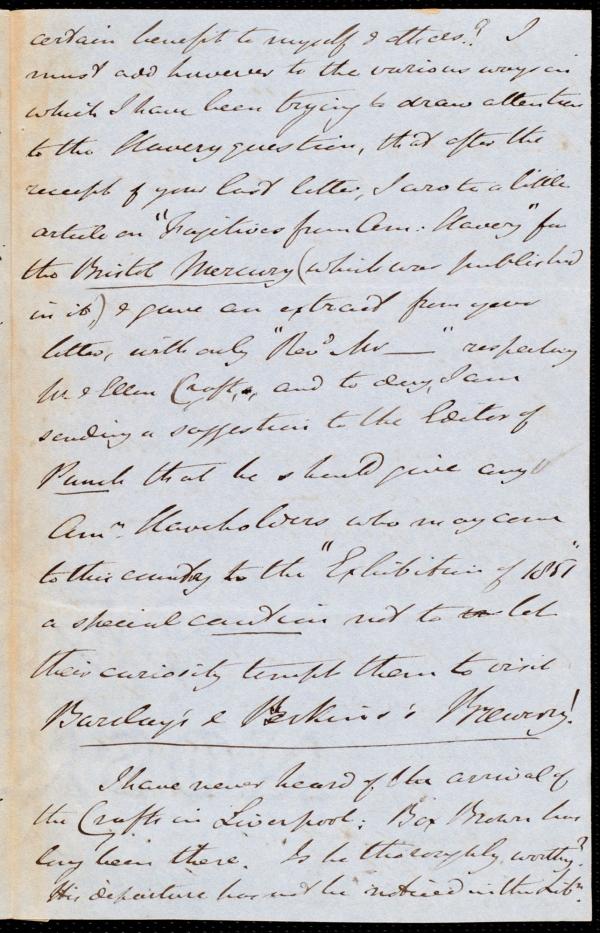 certain benefit to myself & others? I
must add however to the various ways in
which I have been trying to draw attention
to the Slavery question, that after the
receipt of your last letter, I wrote a little
article on "Fugitives from Am. Slavery" for
the Bristol Mercury (which was published
in it,) & gave an extract from your
letter, with only "Revd. Mr — " respecting
W. & Ellen Craft, and to day, I am
sending a suggestion to the Editor of
Punch that he should give any
Amn. Slaveholders who may come
to this country to the "Exhibition of 1851"
a special caution not to let
their curiosity tempt them to visit
Barclay's & Perkins's Brewery!
I have never heard of the arrival of
the Crafts in Liverpool; Box Brown has
long been there. Is he thoroughly worthy?
His departure has not be noticed in the Libr.